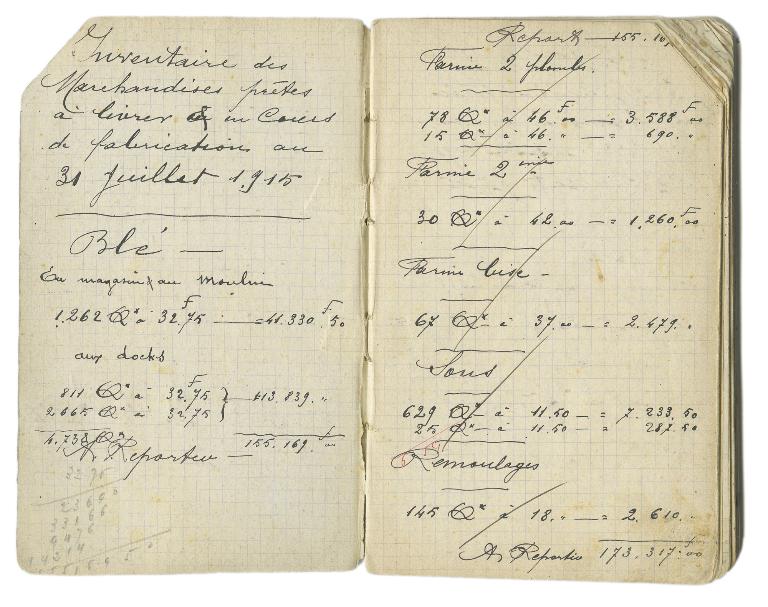 Inventaire des
Marchandises prêtes
à livrer & en Cours
de fabrication au
31 Juillet 1915
Blé —
En magasin & au moulin
1.262 Qx à 32,F75 — = 41.330.F50
aux docks
811 Qx à 32,F75 } — 113.839. "
2.665 Qx à 32,75 }
4,738 Qx
A Reporter — 155.169.F00
Report — 155.169
Farine 2 plombs.
78 Qx à 46F.00 — = 3.588F.00
15 Qx à 46. " — = 690. "
Farine 2
30 Qx à 42.00 — = 1,260.F00
Farine bise —
67 Qx — à 37.00 — = 2.479. "
Sons
629 Qx — à 11.50 — = 7.233,50
25 Qx — à 11.50 — = 287.50
Remoulages
145 Qx à 18. " — = 2.610. "
A Reporter 173.317.F00